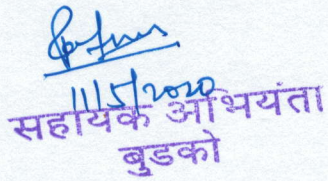 11/5/2020
सहायक अभियंता
बुडको